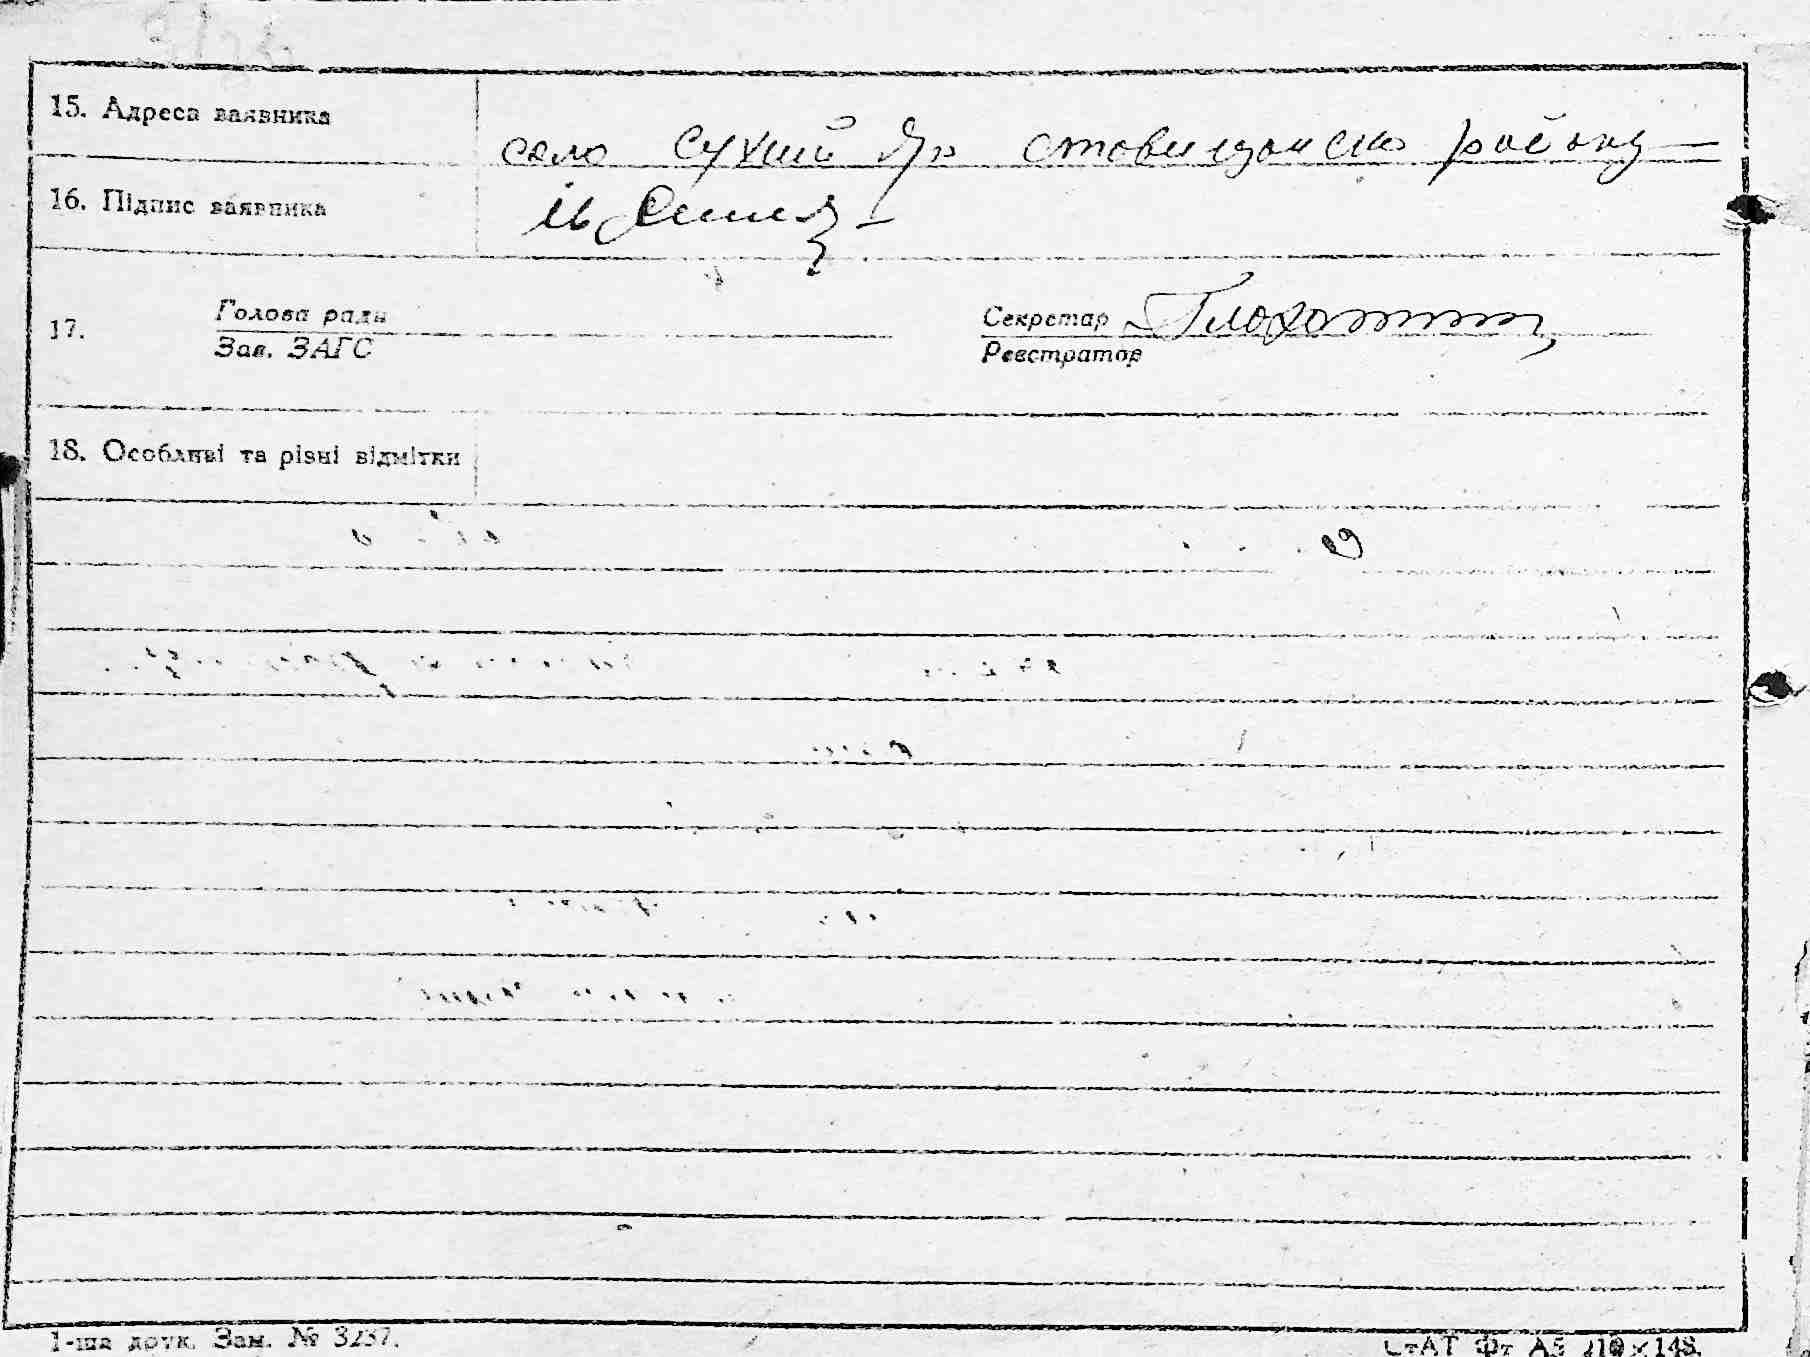 15. Адреса заявника
село Сухий Яр Ставищанськ району
16. Підпис заявника
17.
Голова ради
Зав. ЗАГС
Секретар
Реєстратор
18. Особливі та різні відмітки
1-ша друк. Зам. № 3237.
СтАТ Фт А5 210×148.